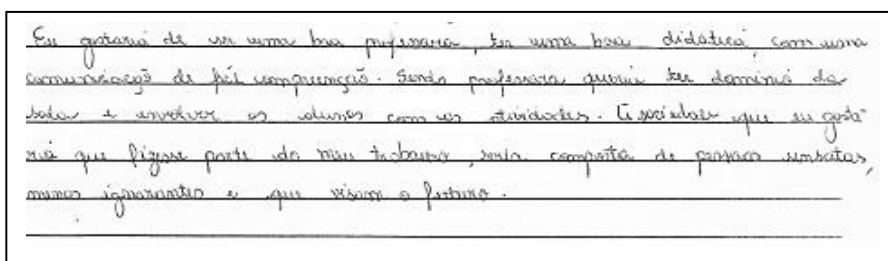 Eu gostaria de ser uma boa professora, ter uma boa didática, com uma
comunicação de fácil compreenção. Sendo professora queria ter dominio da
sala e envolver os alunos com as atividades. A sociedade que eu gosta-
ria que fizesse parte do meu trabalho, seria composta de pessoas sensatas,
menos ignorantes e que visam o futuro.